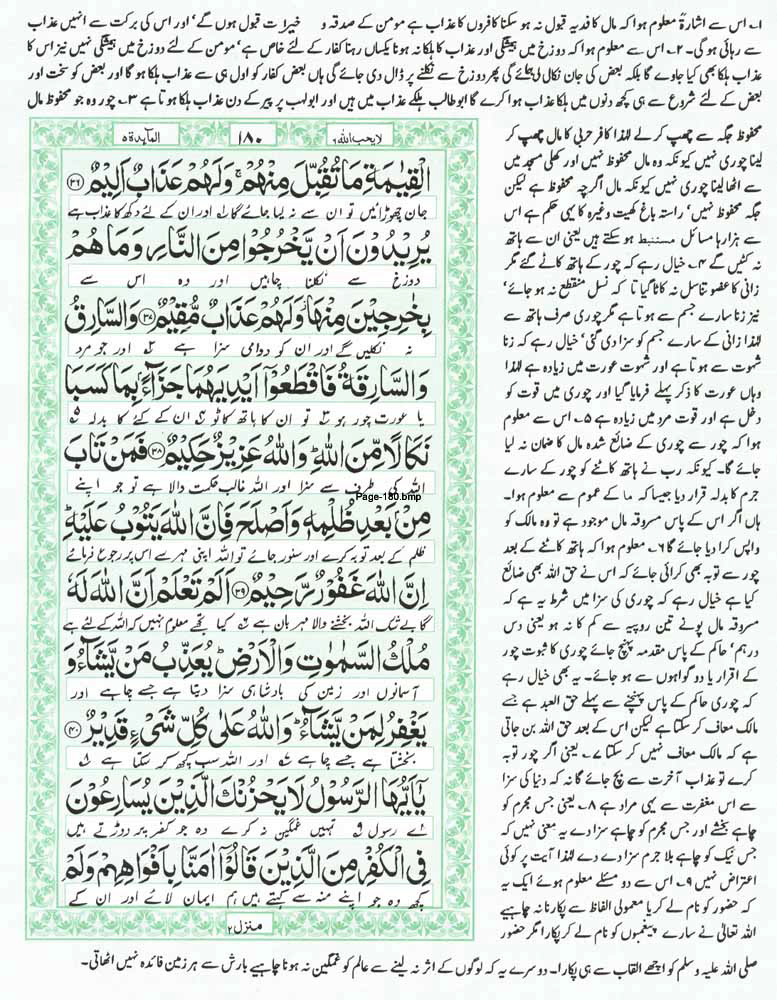 ۱۔ اس سے اشارۃً معلوم ہوا کہ مال کا فدیہ قبول نہ ہو سکنا کافروں کا عذاب ہے مومن کے صدقہ و خیرات قبول ہوں گے' اور اس کی برکت سے انہیں عذاب
سے رہائی ہو گی۔ ۲۔ اس سے معلوم ہوا کہ دوزخ میں ہمیشگی اور عذاب کا ہلکا نہ ہونا یکساں رہنا کفار کے لئے خاص ہے' مومن کے لئے دوزخ میں ہمیشگی نہیں نیز اس کا
عذاب ہلکا بھی کیا جاوے گا بلکہ بعض کی جان نکال لی جائے گی پھر دوزخ سے نکلنے پر ڈال دی جائے گی ہاں بعض کفار کو اول ہی سے عذاب ہلکا ہو گا اور بعض کو سخت اور
بعض کے لئے شروع سے ہی کچھ دنوں میں ہلکا عذاب ہوا کرے گا ابوطالب ہلکے عذاب میں ہیں اور ابولہب پر پیر کے دن عذاب ہلکا ہوتا ہے ۳۔ چور وہ جو محفوظ مال
لا یحب اللہ ۶
۱۸۰
المآئدۃ ۵
الْقِيٰمَةِ مَا تُقُبِّلَ مِنْهُمْ ۚ وَلَهُمْ عَذَابٌ اَلِيْمٌ ۝۳۶
جان چھڑائیں تو ان سے نہ لیا جائے گا اور ان کے لئے دکھ کا عذاب ہے
يُرِيْدُوْنَ اَنْ يَّخْرُجُوْا مِنَ النَّارِ وَمَا هُمْ
دوزخ سے نکلنا چاہیں اور وہ اس سے
بِخٰرِجِيْنَ مِنْهَا ۫ وَلَهُمْ عَذَابٌ مُّقِيْمٌ ۝۳۷ وَالسَّارِقُ
نہ نکلیں گے اور ان کو دوامی سزا ہے اور جو مرد
وَالسَّارِقَةُ فَاقْطَعُوْٓا اَيْدِيَهُمَا جَزَآءًۢ بِمَا كَسَبَا
یا عورت چور ہو تو ان کا ہاتھ کاٹو ان کے کئے کا بدلہ
نَكَالًا مِّنَ اللّٰهِ ؕ وَاللّٰهُ عَزِيْزٌ حَكِيْمٌ ۝۳۸ فَمَنْ تَابَ
اللہ کی طرف سے سزا اور اللہ غالب حکمت والا ہے تو جو اپنے
Page-180.bmp
مِنْۢ بَعْدِ ظُلْمِهٖ وَاَصْلَحَ فَاِنَّ اللّٰهَ يَتُوْبُ عَلَيْهِ ؕ
ظلم کے بعد توبہ کرے اور سنور جائے تو اللہ اپنی مہر سے اس پر رجوع فرمائے
اِنَّ اللّٰهَ غَفُوْرٌ رَّحِيْمٌ ۝۳۹ اَلَمْ تَعْلَمْ اَنَّ اللّٰهَ لَهٗ
گا بے شک اللہ بخشنے والا مہربان ہے کیا تجھے معلوم نہیں کہ اللہ کے لئے ہے
مُلْكُ السَّمٰوٰتِ وَالْاَرْضِ ؕ يُعَذِّبُ مَنْ يَّشَآءُ وَ
آسمانوں اور زمین کی بادشاہی سزا دیتا ہے جسے چاہے اور
يَغْفِرُ لِمَنْ يَّشَآءُ ؕ وَاللّٰهُ عَلٰى كُلِّ شَيْءٍ قَدِيْرٌ ۝۴۰
بخشتا ہے جسے چاہے اور اللہ سب کچھ کر سکتا ہے
يٰٓاَيُّهَا الرَّسُوْلُ لَا يَحْزُنْكَ الَّذِيْنَ يُسَارِعُوْنَ
اے رسول تمہیں غمگین نہ کرے وہ جو کفر پر دوڑتے ہیں
فِي الْكُفْرِ مِنَ الَّذِيْنَ قَالُوْٓا اٰمَنَّا بِاَفْوَاهِهِمْ وَلَمْ
کچھ وہ جو اپنے منہ سے کہتے ہیں ہم ایمان لائے اور ان کے
منزل ۲
محفوظ جگہ سے چھپ کر لے لہٰذا کافر حربی کا مال چھپ کر
لینا چوری نہیں کیونکہ وہ مال محفوظ نہیں اور کھلی مسجد میں
سے اٹھا لینا چوری نہیں کیونکہ مال اگرچہ محفوظ ہے لیکن
جگہ محفوظ نہیں' راستہ باغ کھیت وغیرہ کا یہی حکم ہے اس
سے ہزارہا مسائل مستنبط ہو سکتے ہیں یعنی ان سے ہاتھ
نہ کٹیں گے ۴۔ خیال رہے کہ چور کے ہاتھ کاٹے گئے مگر
زانی کا عضو تناسل نہ کاٹا گیا تا کہ نسل منقطع نہ ہو جائے'
نیز زنا سارے جسم سے ہوتا ہے مگر چوری صرف ہاتھ سے
لہٰذا زانی کے سارے جسم کو سزا دی گئی' خیال رہے کہ زنا
شہوت سے ہوتا ہے اور شہوت عورت میں زیادہ ہے لہٰذا
وہاں عورت کا ذکر پہلے فرمایا گیا اور چوری میں قوت کو
دخل ہے اور قوت مرد میں زیادہ ہے ۵۔ اس سے معلوم
ہوا کہ چور سے چوری کے ضائع شدہ مال کا ضمان نہ لیا
جائے گا۔ کیونکہ رب نے ہاتھ کاٹنے کو چور کے سارے
جرم کا بدلہ قرار دیا جیسا کہ ما کے عموم سے معلوم ہوا۔
ہاں اگر اس کے پاس مسروقہ مال موجود ہے تو وہ مالک کو
واپس کرا دیا جائے گا ۶۔ معلوم ہوا کہ ہاتھ کاٹنے کے بعد
چور سے توبہ بھی کرائی جائے کہ اس نے حق اللہ بھی ضائع
کیا ہے خیال رہے کہ چوری کی سزا میں شرط یہ ہے کہ
مسروقہ مال پونے تین روپیہ سے کم کا نہ ہو یعنی دس
درہم' حاکم کے پاس مقدمہ پہنچ جائے چوری کا ثبوت چور
کے اقرار یا دو گواہوں سے ہو جائے۔ یہ بھی خیال رہے
کہ چوری حاکم کے پاس پہنچنے سے پہلے حق العبد ہے جسے
مالک معاف کر سکتا ہے لیکن اس کے بعد حق اللہ بن جاتی
ہے کہ مالک معاف نہیں کر سکتا ۷۔ یعنی اگر چور توبہ
کرے تو عذاب آخرت سے بچ جائے گا نہ کہ دنیا کی سزا
سے اس مغفرت سے یہی مراد ہے ۸۔ یعنی جس مجرم کو
چاہے بخشے اور جس مجرم کو چاہے سزا دے یہ معنی نہیں کہ
جس نیک کو چاہے بلا جرم سزا دے دے لہٰذا آیت پر کوئی
اعتراض نہیں ۹۔ اس سے دو مسئلے معلوم ہوئے ایک یہ
کہ حضور کو نام لے کر یا معمولی الفاظ سے پکارنا نہ چاہیے
اللہ تعالیٰ نے سارے پیغمبوں کو نام لے کر پکارا مگر حضور
صلی اللہ علیہ وسلم کو اچھے القاب سے ہی پکارا۔ دوسرے یہ کہ لوگوں کے اثر نہ لینے سے عالم کو غمگین نہ ہونا چاہیے بارش سے ہر زمین فائدہ نہیں اٹھاتی۔